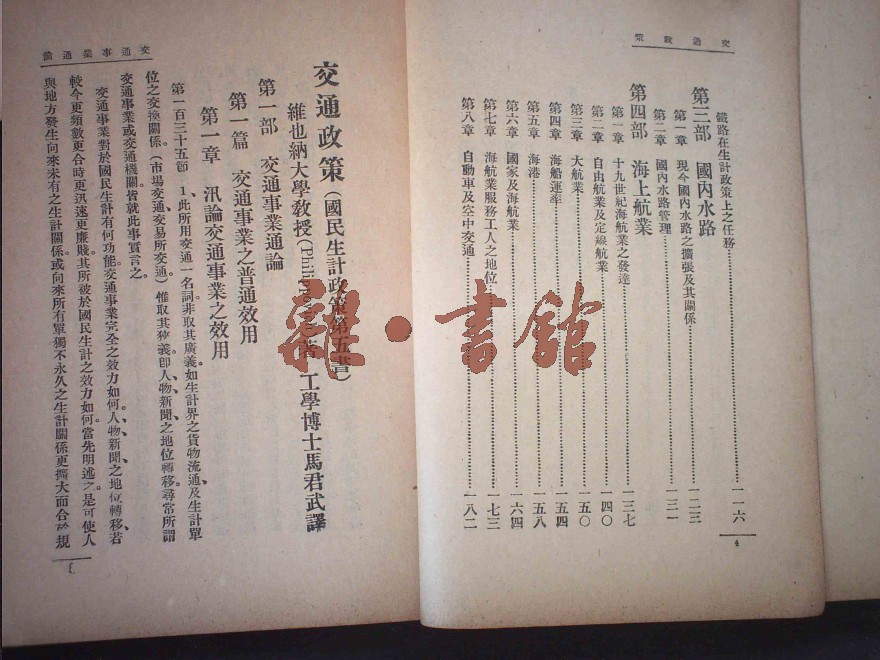 交通政策
鐵路在生計政策上之任務……一一六
第三部　國內水路
第一章　現今國內水路之擴張及其關係……一二三
第二章　國內水路管理……一三一
第四部　海上航業
第一章　十九世紀海航業之發達……一三七
第二章　自由航業及定線航業……一四〇
第三章　大航業……一五〇
第四章　海船運率……一五四
第五章　海港……一五八
第六章　國家及海航業……一六四
第七章　海航業服務工人之地位……一七三
第八章　自動車及空中交通……一八二
4
交通事業通論
交通政策(國民生計政策第五書)
維也納大學教授(Philippovich)著　工學博士馬君武譯
第一部　交通事業通論
第一篇　交通事業之普通效用
第一章　汎論交通事業之效用
第一百三十五節　1、此所用交通一名詞非取其廣義如生計界之貨物流通及生計單
位之交換關係。(市場交通、交易所交通)惟取其狹義卽人、物、新聞之地位轉移。尋常所謂
交通事業或交通機關皆就此事實言之。
交通事業對於國民生計有何功能。交通事業完全之效力如何。人、物、新聞之地位轉移若
較今更頻數更合時更迅速更廉賤其所被於國民生計之效力如何。當先明述之。是可使人
與地方發生向來未有之生計關係。或向來所有單獨不永久之生計關係更擴大而合於規
1
龍·書館